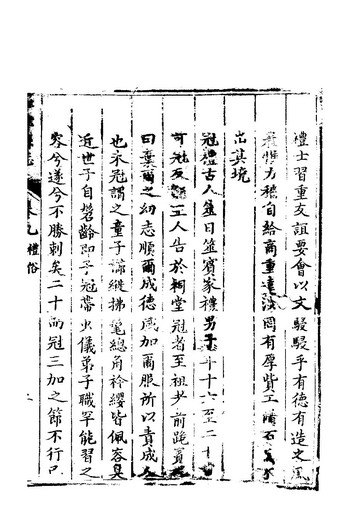 禮士習重友誼要會以文駸駸乎有德有造之風
力穡自給商重遠涉罔有厚貲工
出其境
冠禮古人筮日筮賓家禮男子年十六至二十
可冠三人告於祠堂冠者至祖父前跪
曰棄爾之幼志順爾成德咸加爾服所以責成人
也未冠謂之童子縰拂髦總角衿纓皆佩容臭
近世子自髫齡即予冠帶少儀弟子職罕能習之
容兮遂兮不勝刺矣二十而冠三加之節不行已
禮俗